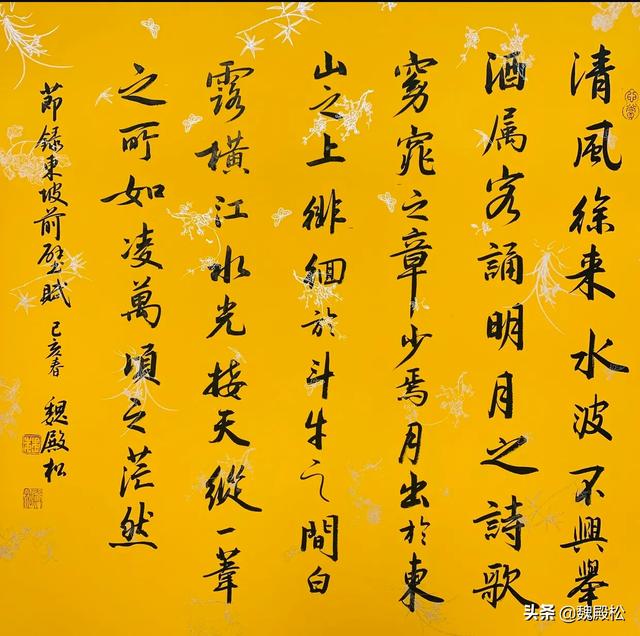 清風徐来水波不興舉
酒属客誦明月之詩歌
窈窕之章少焉月出於東
山之上徘徊於斗牛之間白
露橫江水光接天縱一葦
之所如凌萬頃之茫然
節録東坡前壁賦 己亥春 魏殿松
头条 @魏殿松